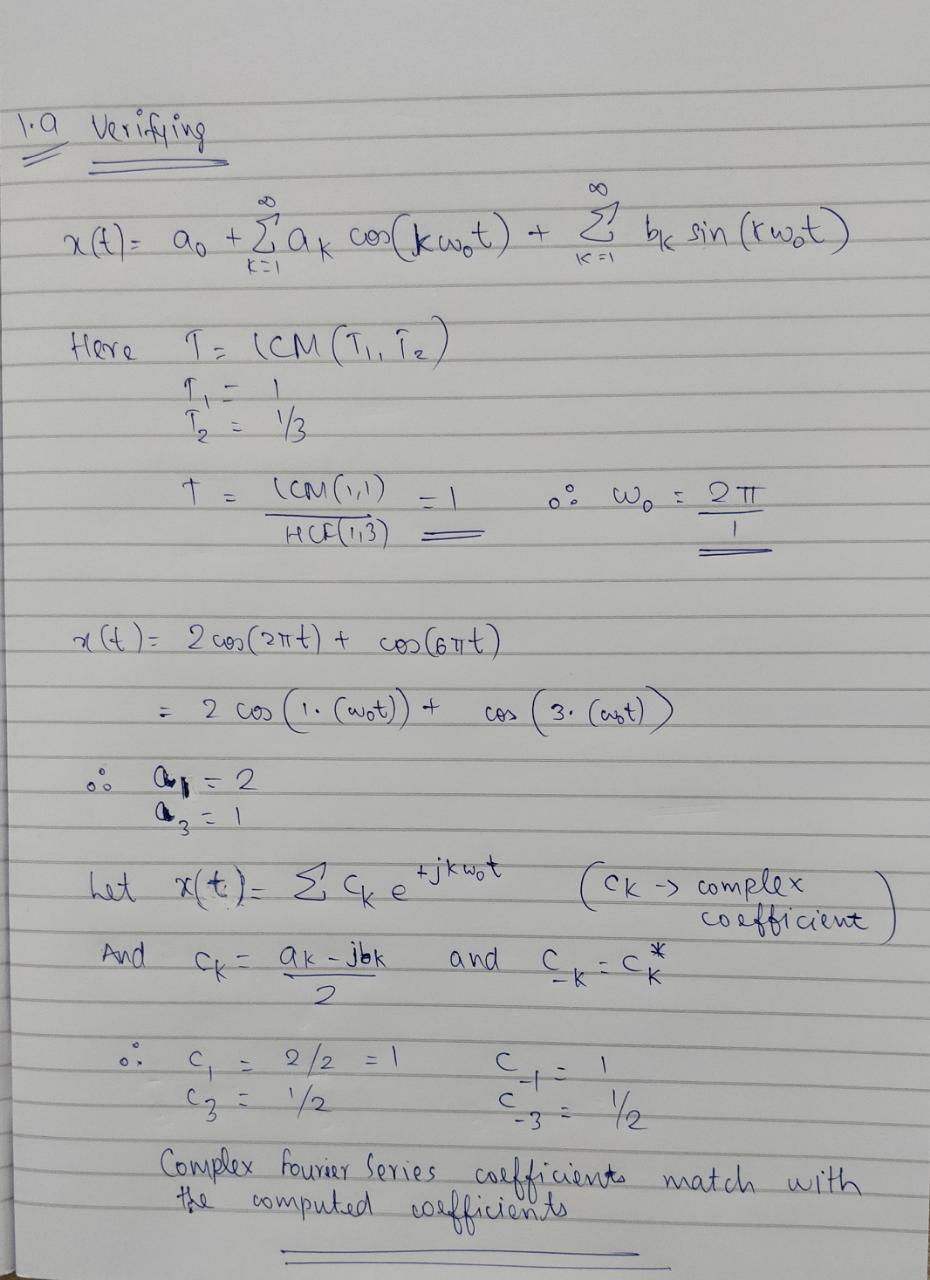 1.a Verifying
x(t) = a₀ + ∞ Σ k=1 aₖ cos(kω₀t) + ∞ Σ k=1 bₖ sin(kω₀t)
Here T = LCM(T₁, T₂)
T₁ = 1
T₂ = 1/3
T = LCM(1,1) / HCF(1,3) = 1 ∴ ω₀ = 2π / 1
x(t) = 2 cos(2πt) + cos(6πt)
= 2 cos(1.(ω₀t)) + cos(3.(ω₀t))
∴ a₁ = 2
a₃ = 1
Let x(t) = Σ Cₖ e^(+jkω₀t) (Cₖ → complex
coefficient)
And Cₖ = (aₖ - jbₖ) / 2 and C₋ₖ = Cₖ*
∴ C₁ = 2/2 = 1 C₋₁ = 1
C₃ = 1/2 C₋₃ = 1/2
Complex Fourier Series coefficients match with
the computed coefficients